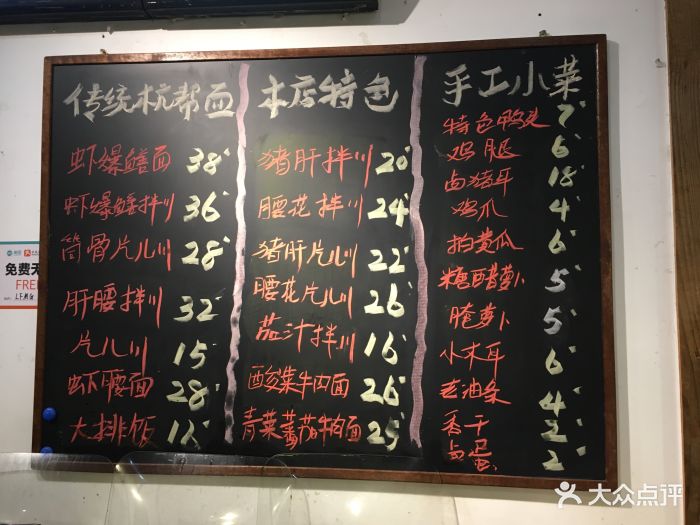 传统杭帮面
虾爆鳝面 38
虾爆鳝拌川 36
筒骨片儿川 28
肝腰拌川 32
片儿川 15
虾腰面 28
大排饭
本店特色
猪肝拌川 20
腰花拌川 24
猪肝片儿川 22
腰花片儿川 26
茄汁拌川 16
酸菜牛肉面 26
青菜蕃茄牛肉面 25
手工小菜
特色鸭头 7
鸡腿 6
卤猪耳 18
鸡爪 4
拍黄瓜 6
糖醋萝卜 5
腌萝卜 5
小木耳 6
老油条 4
香干 2
卤蛋 2
免费无
FREE
大众点评